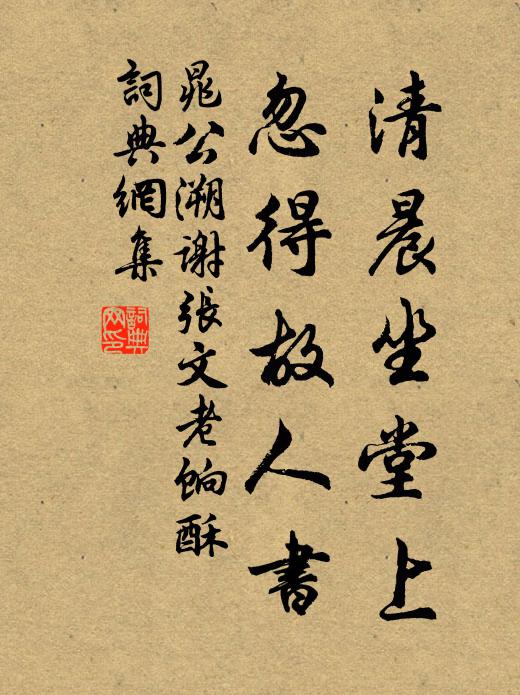 清晨坐堂上
忽得故人書
晁公溯謝張文老餉酥
詞典網集
詞典网印